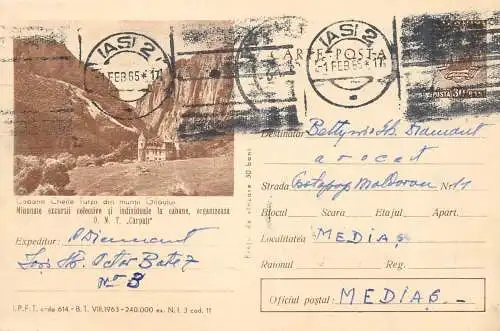 IASI 2
FEB 65 * 17
CARTE POSTA
IASI 2
FEB 65 * 17
POSTA 30 BANI
Cabana Cheile Turzii din munții Gilăului
Minunate excursii colective și individuale la cabane, organizează
O. N. T. „Carpați"
Expeditor:
Iași Str.
No 8
I.P.F.T. c-da 614 - B.T. VIII.1963 - 240.000 ex. N.I. 3 cod. 11
Preț de vînzare 30 bani
Destinatar Diamant
avocat
Strada Nr. 11
Blocul Scara Etajul Apart.
Localitatea MEDIAȘ
Raionul Reg.
Oficiul poștal: MEDIAȘ